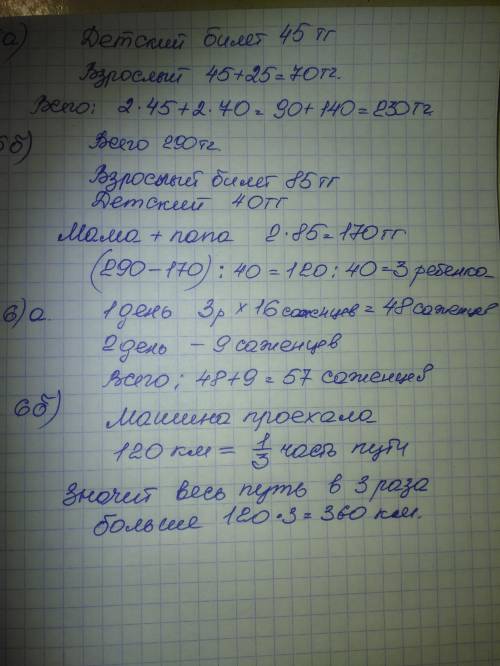 а) Детский билет 45 тг
Взрослый 45+25=70тг.
Всего: 2·45+2·70=90+140=230тг
5б) Всего 290тг.
Взрослый билет 85тг
Детский 40тг
Мама + папа 2·85=170тг
(290-170):40=120:40=3 ребенка
6)а. 1 день 3р × 16 саженцев = 48 саженцев
2 день - 9 саженцев
Всего; 48+9=57 саженцев
6б) Машина проехала
120 км = 1/3 часть пути
Значит весь путь в 3 раза
больше 120·3=360 км.